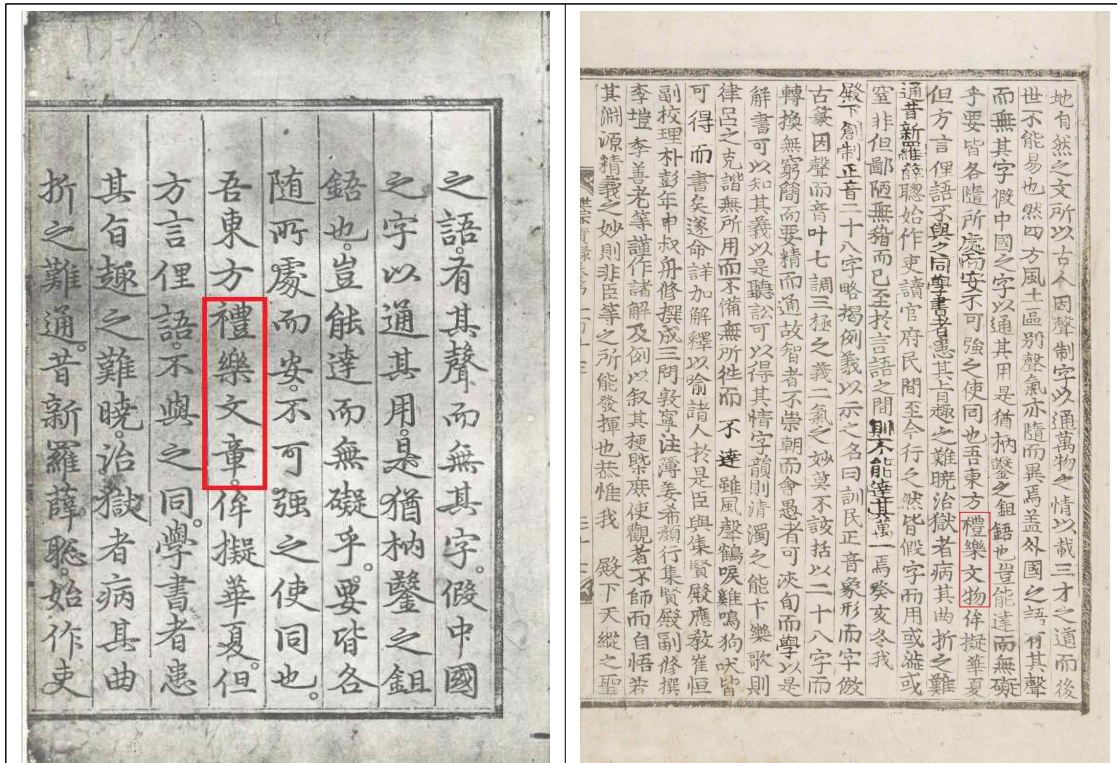 之語。有其聲而無其字。假中國
之字以通其用。是猶枘鑿之鉏
鋙也。豈能達而無礙乎。要皆各
随所處而安。不可强之使同也。
吾東方禮樂文章。侔擬華夏。但
方言俚語。不與之同。學書者患
其旨趣之難曉。治獄者病其曲
折之難通。昔新羅薛聰。始作吏
地自然之文所以古人因聲制字以通萬物之情以載三才之道而後
世不能易也然四方風土區別聲氣亦隨而異焉盖外國之語有其聲
而無其字假中國之字以通其用是猶枘鑿之鉏鋙也豈能達而無礙
乎要皆各隨所處而安不可強之使同也吾東方禮樂文物侔擬華夏
但方言俚語不與之同學書者患其旨趣之難曉治獄者病其曲折之難
通昔新羅薛聰始作吏讀官府民間至今行之然皆假字而用或澁或
窒非但鄙陋無稽而已至於言語之間則不能達其萬一焉癸亥冬我
殿下創制正音二十八字略揭例義以示之名曰訓民正音象形而字倣
古篆因聲而音叶七調三極之義二氣之妙莫不該括以二十八字而
轉換無窮簡而要精而通故智者不崇朝而會愚者可浹旬而學以是
解書可以知其義以是聽訟可以得其情字韻則清濁之能卞樂歌則
律呂之克諧無所用而不備無所往而不達雖風聲鶴唳雞鳴狗吠皆
可得而書矣遂命詳加解釋以喻諸人於是臣與集賢殿應教崔恒
副校理朴彭年申叔舟修撰成三問敦寧注簿姜希顔行集賢殿副修撰
李塏李善老等謹作諸解及例以叙其梗槩庶使觀者不師而自悟若
其淵源精義之妙則非臣等之所能發揮也恭惟我 殿下天縱之聖